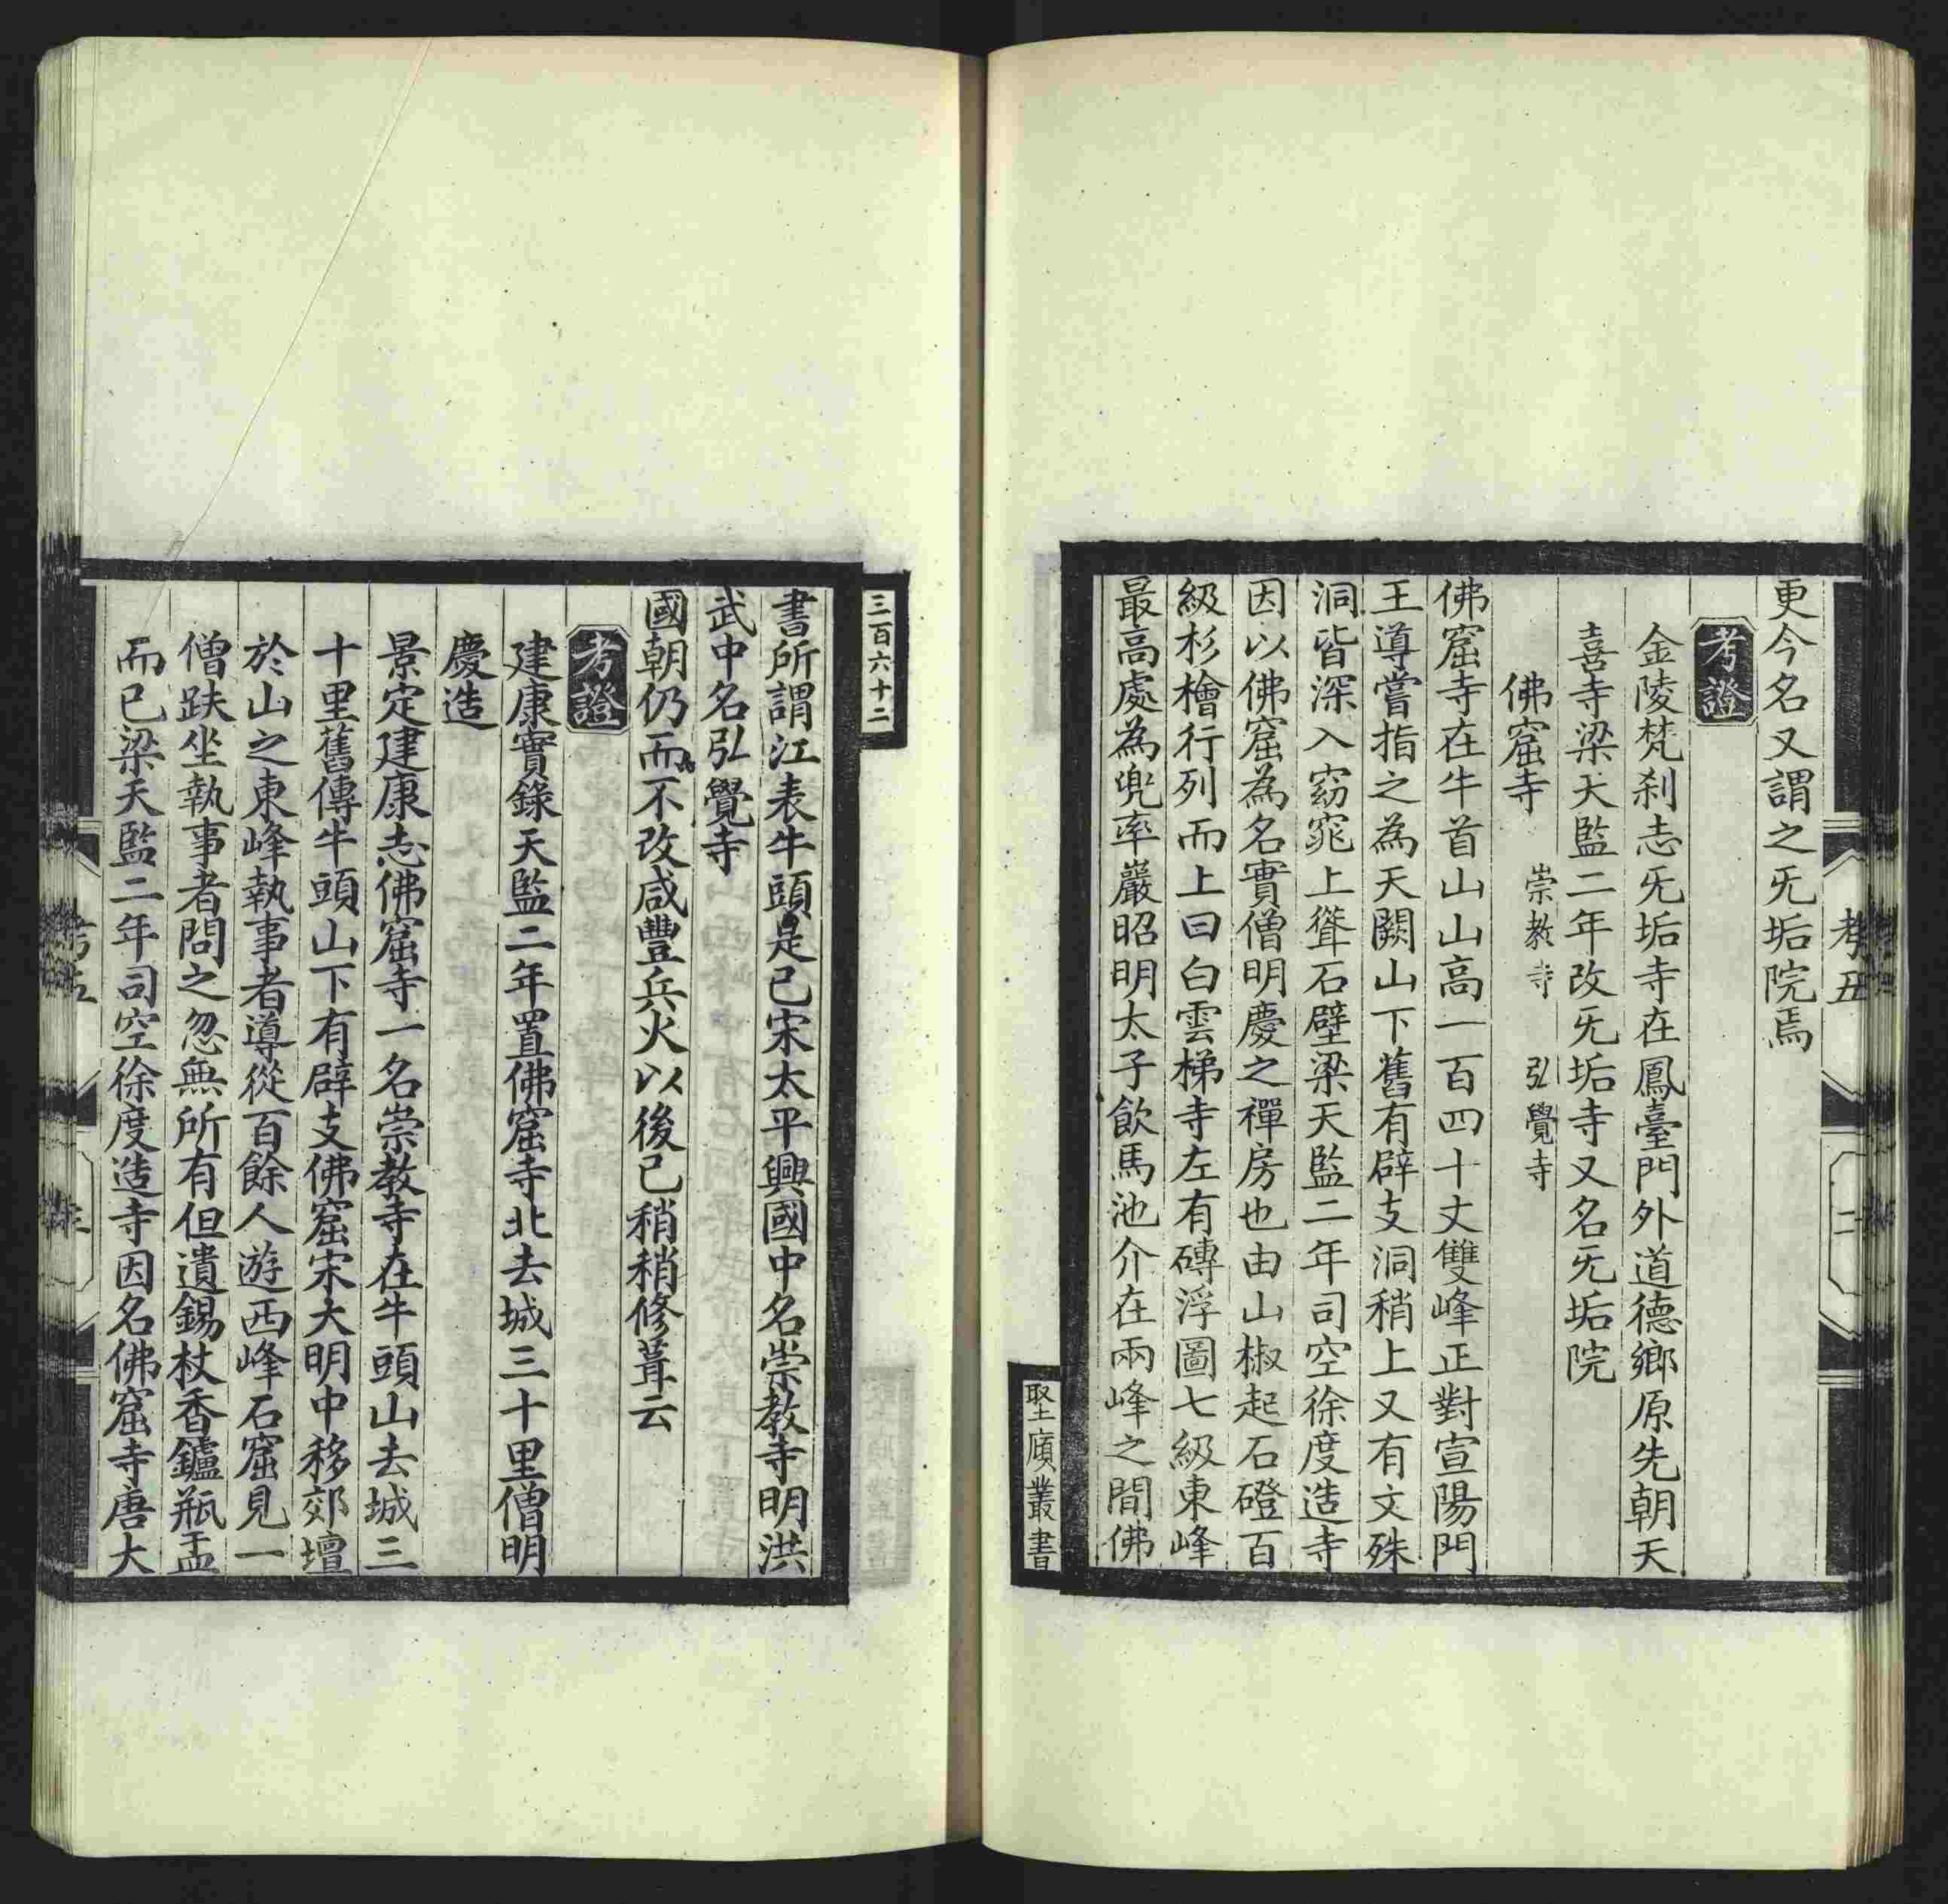 更今名又謂之旡垢院焉
考證
金陵梵刹志旡垢寺在鳳臺門外道德鄉原先朝天
喜寺梁天監二年改旡垢寺又名旡垢院
佛窟寺 崇教寺 弘覺寺
佛窟寺在牛首山山高一百四十丈雙峰正對宣陽門
王導嘗指之為天闕山下舊有辟支洞稍上又有文殊
洞皆深入窈窕上聳石壁梁天監二年司空徐度造寺
因以佛窟為名實僧明慶之禪房也由山椒起石磴百
級杉檜行列而上曰白雲梯寺左有磚浮圖七級東峰
最高處為兜率巖昭明太子飲馬池介在兩峰之間佛
堅廎叢書
三百六十二
書所謂江表牛頭是已宋太平興國中名崇教寺明洪
武中名弘覺寺
國朝仍而不改咸豐兵火以後已稍稍修葺云
考證
建康實錄天監二年置佛窟寺北去城三十里僧明
慶造
景定建康志佛窟寺一名崇教寺在牛頭山去城三
十里舊傳牛頭山下有辟支佛窟宋大明中移郊壇
於山之東峰執事者導從百餘人遊西峰石窟見一
僧趺坐執事者問之忽無所有但遺錫杖香鑪瓶盂
而已梁天監二年司空徐度造寺因名佛窟寺唐大